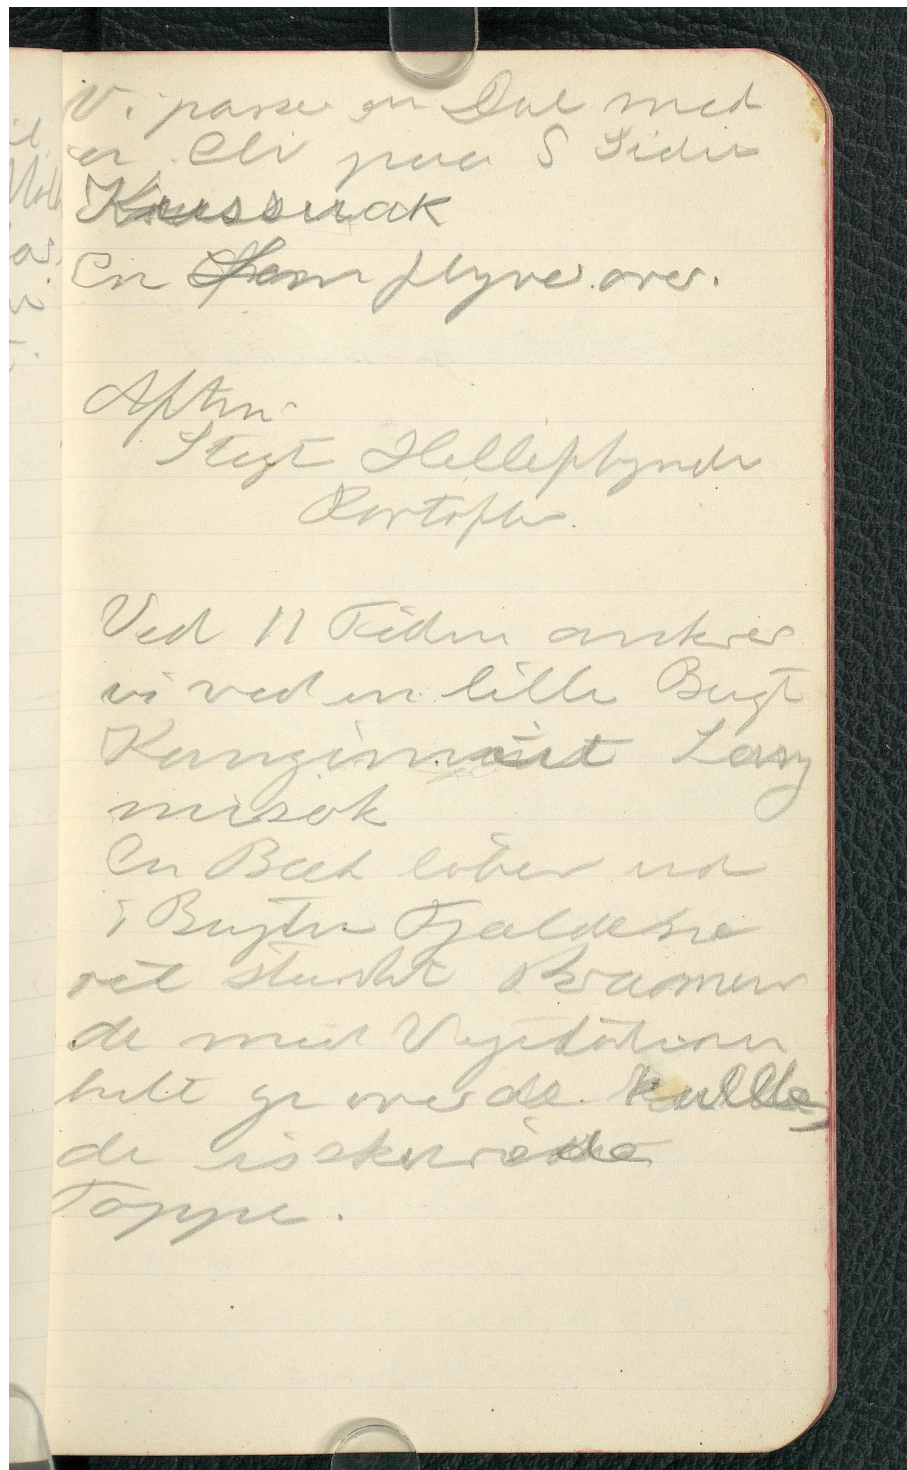 Vi passer en Dal med
en Elv paa S Siden
Kussuak
En Lom flyver over.
Aften.
Stegt Helleflynder
Kartofler.
Ved 11 Tiden ankrer
vi ved en lille Bugt
En Bæk løber ud
i Bugten Fjældene
ret stærkt
de med Vegetationen
helt
de isskurede
Toppe.